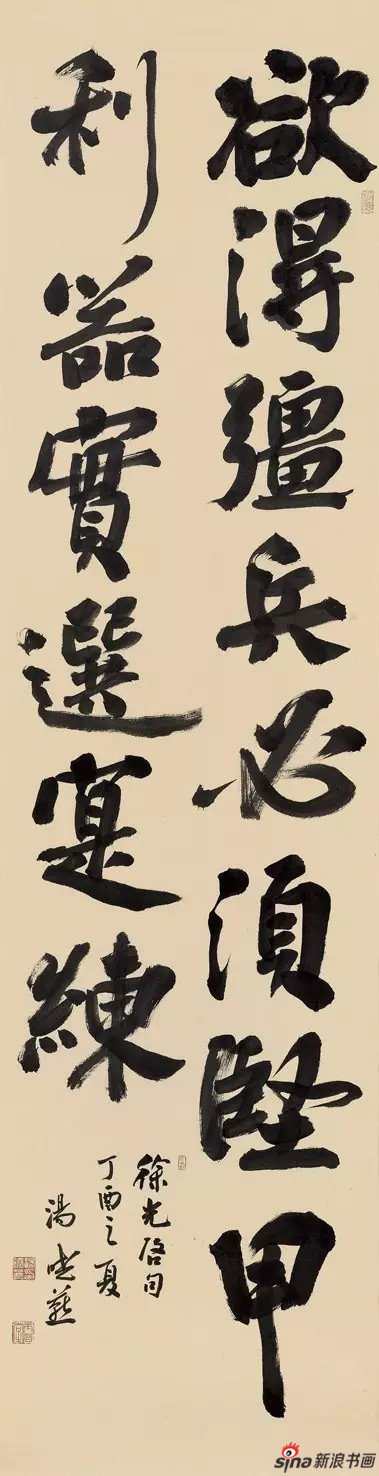 欲得彊兵必須堅甲
利器實選寔練
徐光启句
丁酉之夏
湯
sina新浪书画